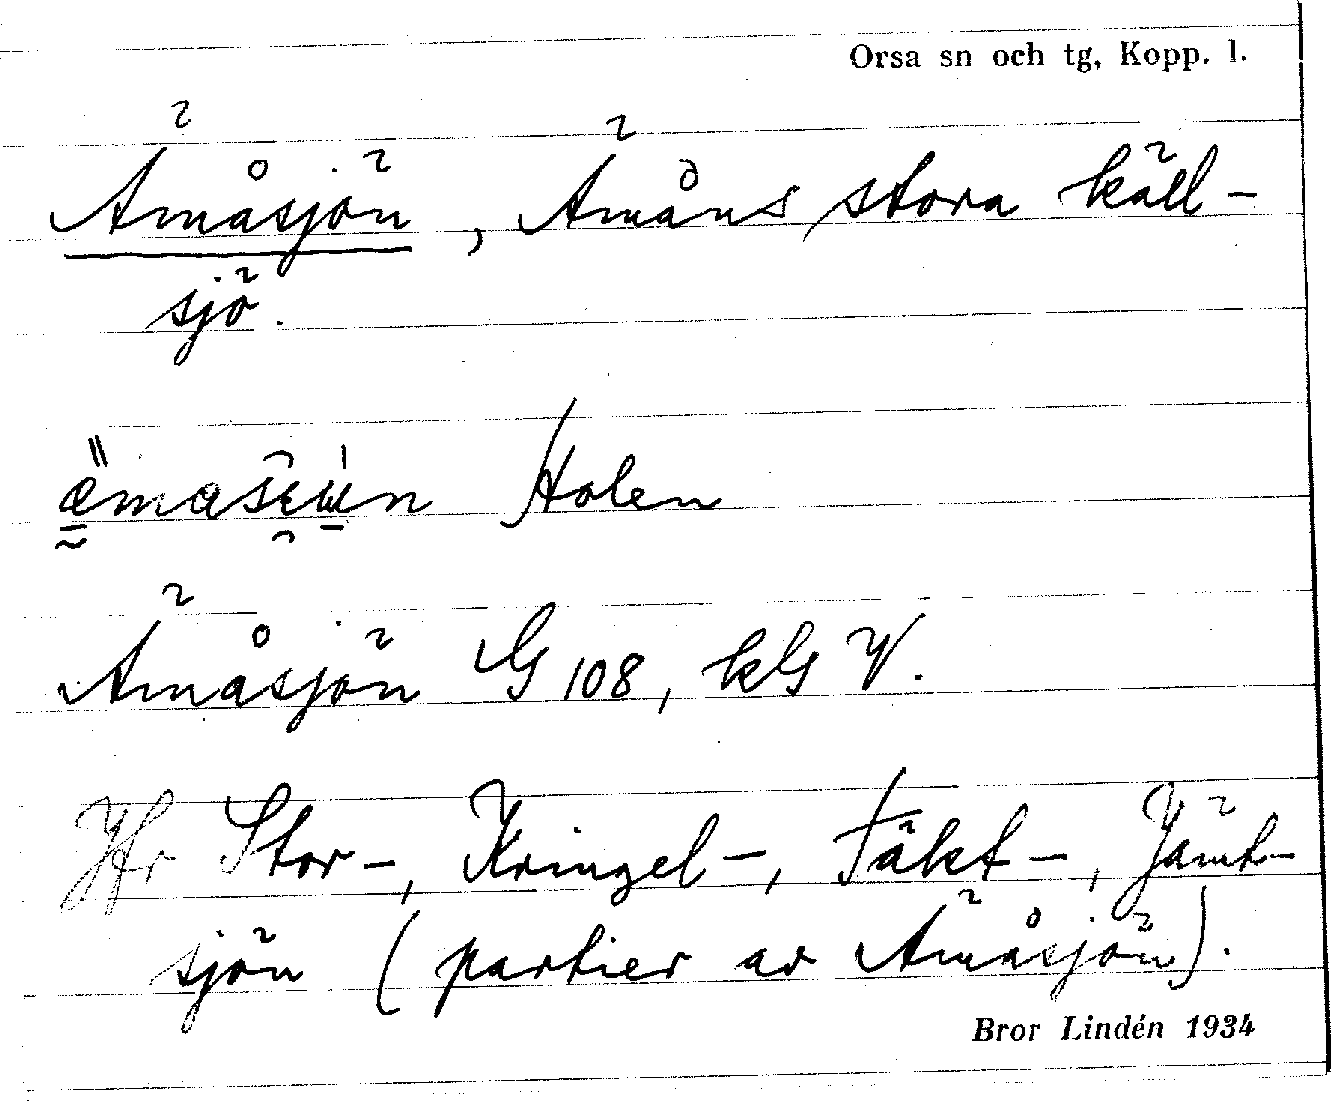 Orsa sn och tg, Kopp. l.
Ämåsjön, Ämåns stora käll-
sjö.
Holen
Ämåsjön G 108, kG V.
Jfr Stor-, Kringel-, Täkt-, Jämt-
sjön (partier av Ämåsjön).
Bror Lindén 1934